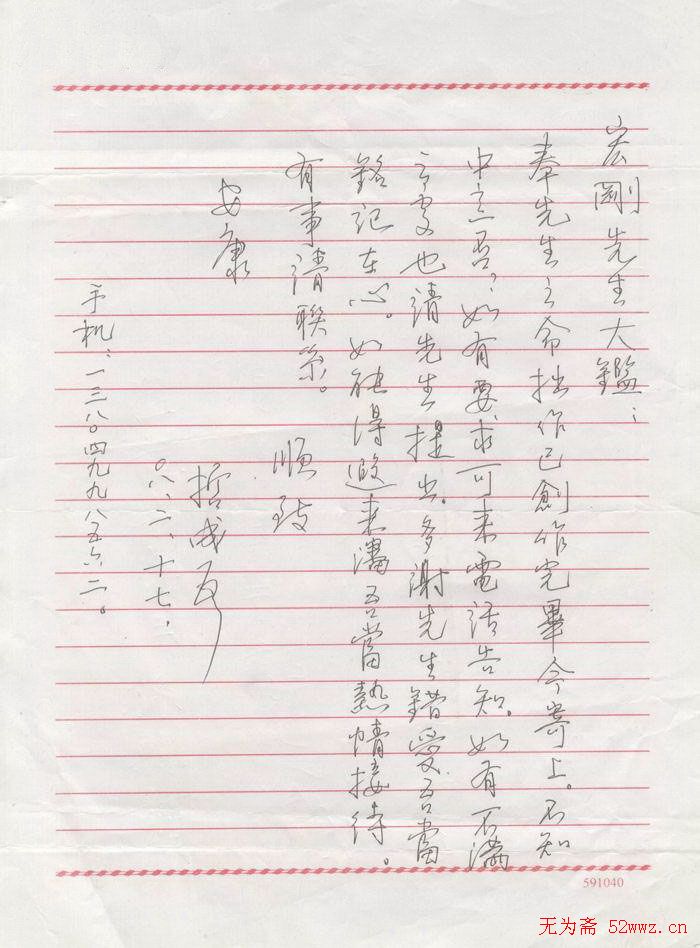 宏剛先生大鑑：
奉先生之命拙作已創作完畢今寄上。不知
中意否，如有要求可来電話告知。如有不滿
之处也請先生提出。多謝先生錯愛吾當
銘記在心。如能得遊来瀋吾當熱情接待。
有事請聯系。
順致
安康
哲成
〇八、二、十七，
手机：一三八〇四九九八五六二。
591040
无为斋 52wwz.cn